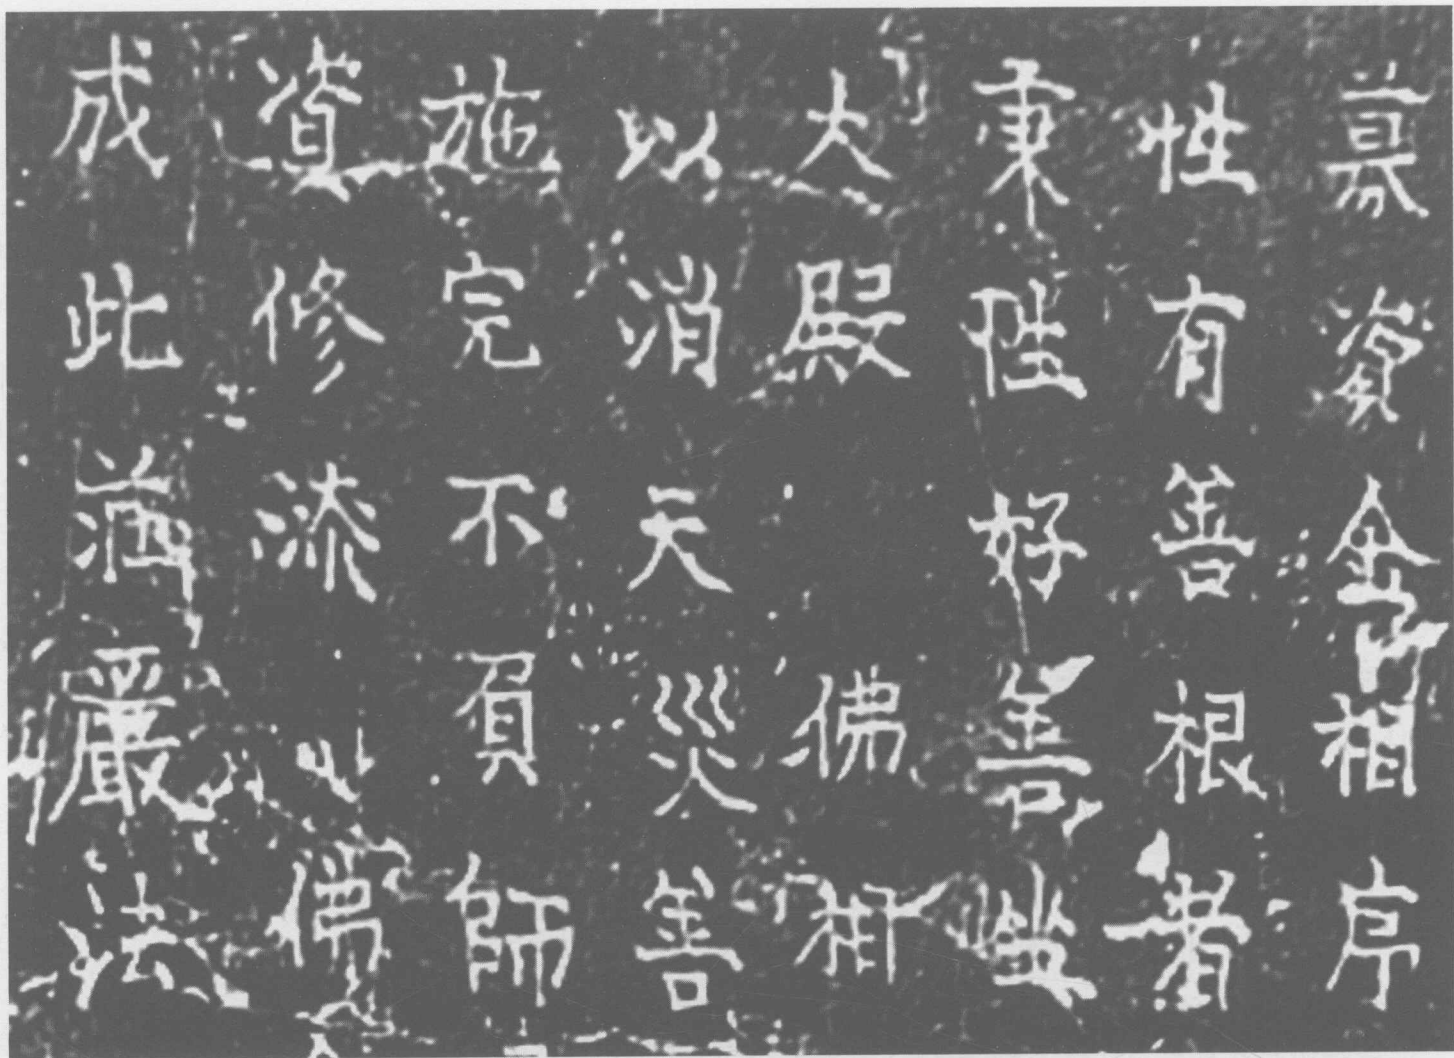 募資金相序
性有善根者
秉性好善
大殿佛相
以消天災善
施完不負師
資修佛
成此莊嚴法